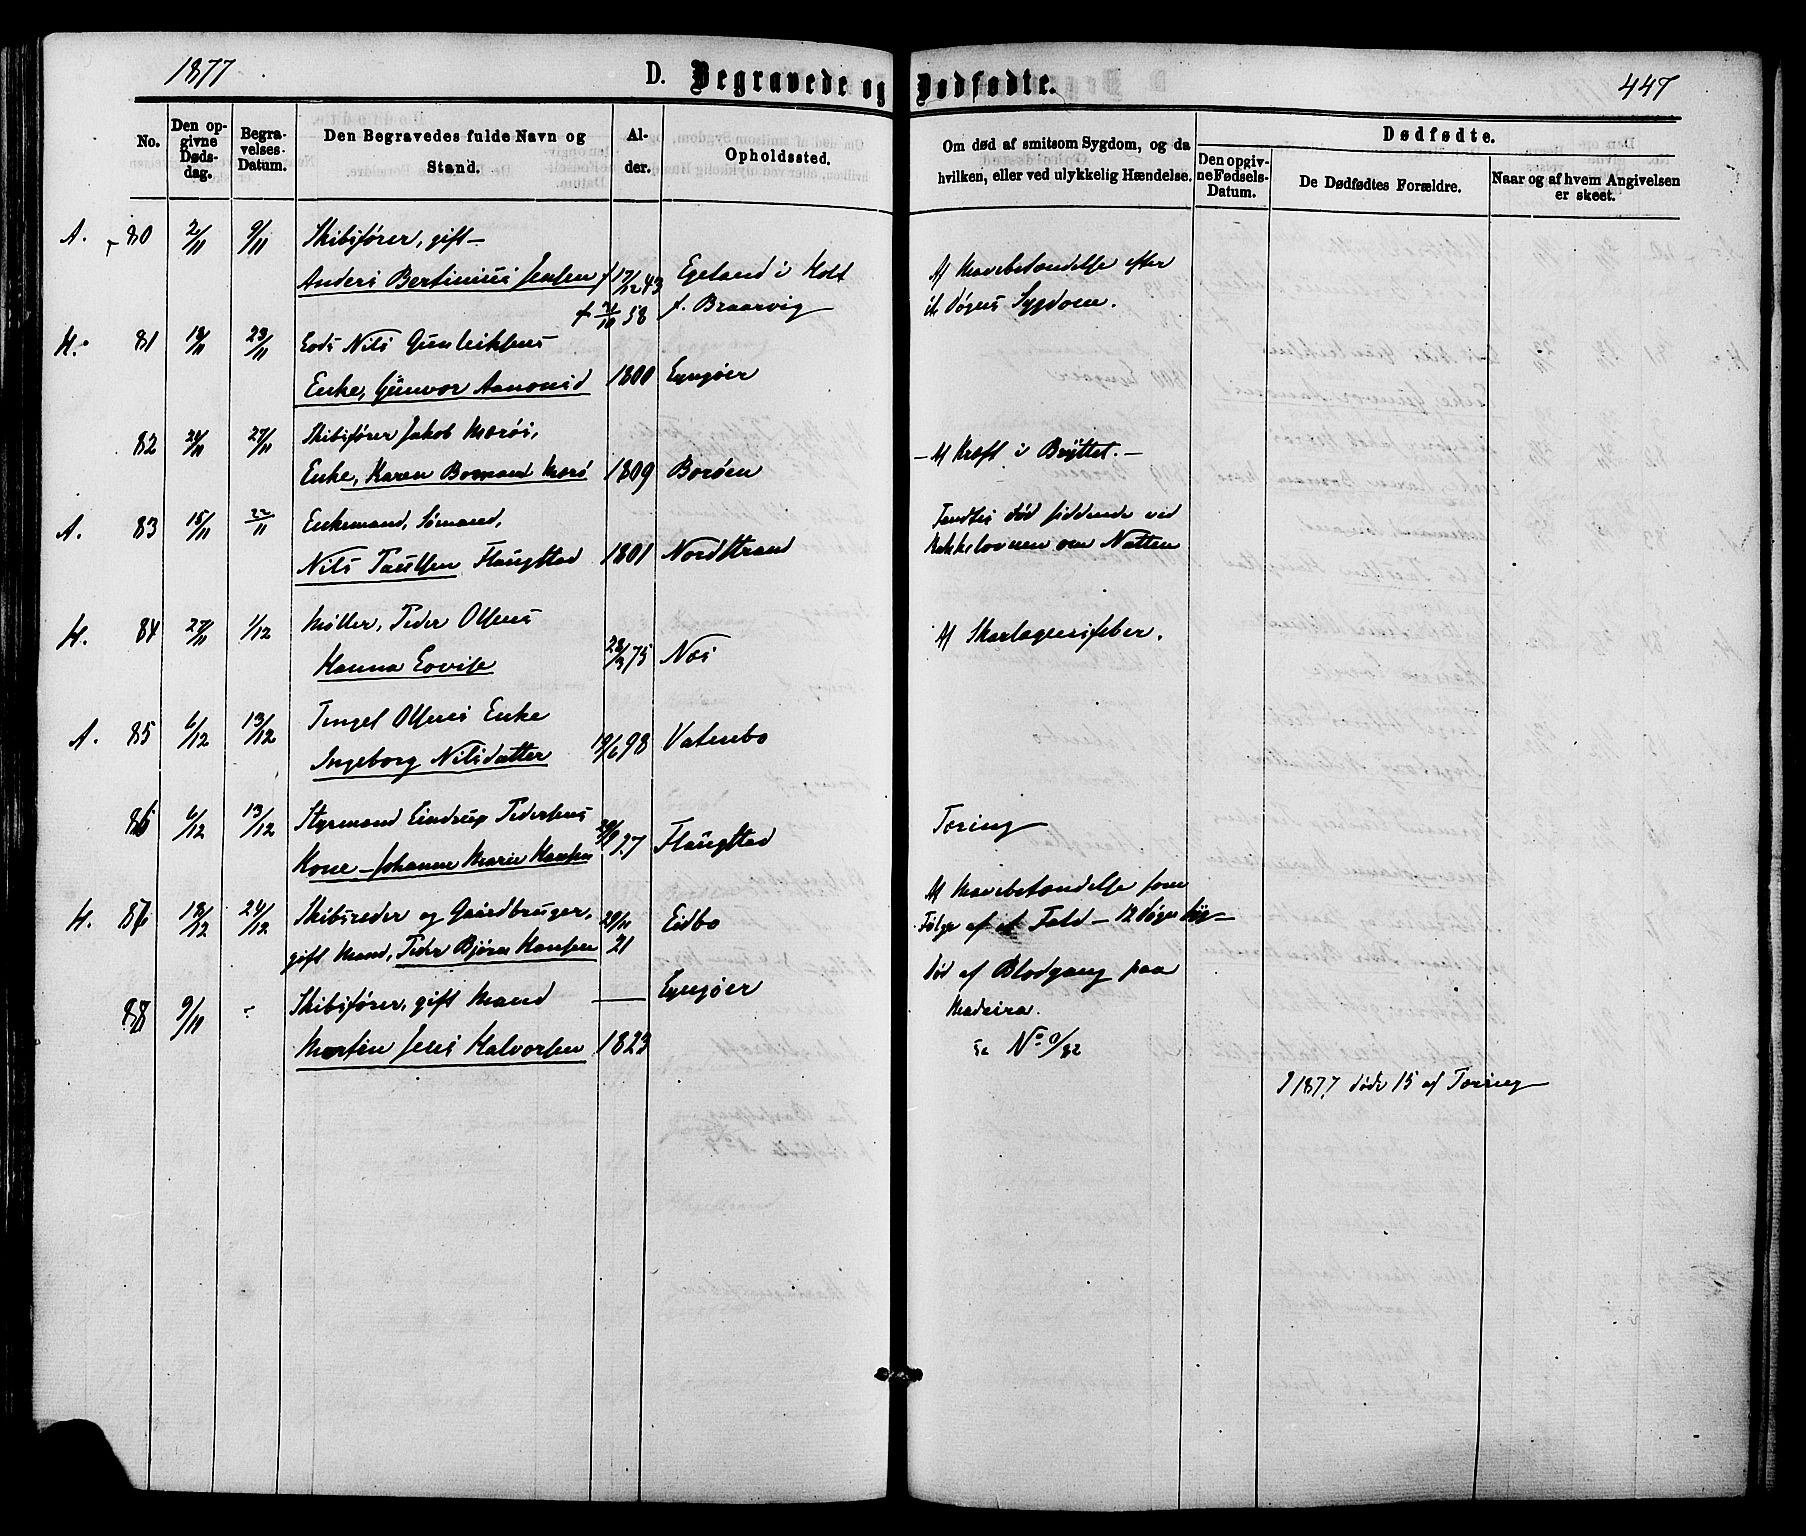 1877
D. Begravede og Dødfødte.
447
No.
Den opgivne Dødsdag.
Begravelses-Datum.
Den Begravedes fulde Navn og Stand.
Alder.
Opholdssted.
Om død af smitsom Sygdom, og da hvilken, eller ved ulykkelig Hændelse.
Dødfødte.
Den opgivne Fødsels-Datum.
De Dødfødtes Forældre.
Naar og af hvem Angivelsen er skeet.
A. 80 2/11 9/11 Skibsfører, gift
Anders Bertinius Jensen f 17/12 43 Egeland i Holt
f. Braarvig
Af Mavebetændelse efter
Døgns Sygdom.
H. 81 18/11 23/11 Nils Gunleiksens
Enke, Gunvor Aanonsd 1800 Lyngøer
82 27/11 Skibsfører Jakob Morøs,
Enke, Karen Bomand Morø 1809 Borøen
Af Kræft i Brÿstet.
A. 83 15/11 22/11 Enkemand, Sømand,
Nils Paulsen Flaugstad 1801 Nordstrand
Fandtes død siddende ved
Kakkelovnen om Natten
H. 84 27/11 1/12 Møller, Peder Olsens
Hanna Lovise 75 Næs
Af Skarlagensfeber.
A. 85 6/12 13/12 Olsens Enke
Ingeborg Nilsdatter 19/6 98 Vatnebo
86 6/12 13/12 Styrmand Lindrup Pedersens
Kone Johanne Marie Hansen 27 Flaugstad
Tæring
H. 87 18/12 24/12 Skibsreder og Gaardbruger,
gift Mand, Peder Bjørn Hansen 21 Eidbo
Af Mavebetændelse som
Følge af et Fald – 12 Døgns Syg
88 9/11 Skibsfører, gift Mand — Lyngøer
Morten Jens Halvorsen 1823
Død af Blodgang paa
Madeira.
se No 9/82
I 1877 døde 15 af Tæring